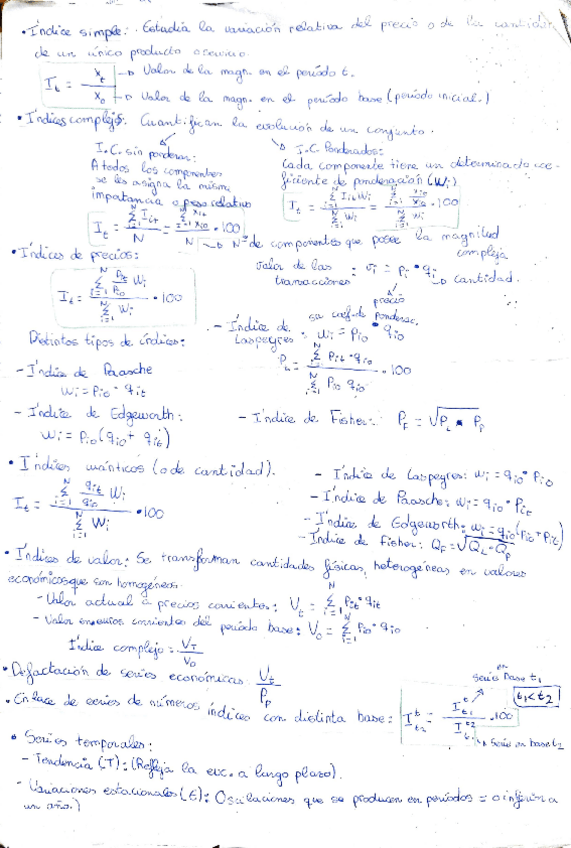 • Índice simple: Estudia la variación relativa del precio o de la cantidad
de un único producto o servicio.
I_t = x_t / x_0 → Valor de la magn. en el período t.
→ Valor de la magn. en el período base (período inicial.)
• Índices complejos: Cuantifican la evolución de un conjunto.
I.C. sin ponderar:
A todos los componentes
se les asigna la misma
importancia o peso relativo
I_t = Σ_{i=1}^N I_it / N = Σ_{i=1}^N x_it/x_i0 / N · 100
→ Nº de componentes que posee la magnitud
compleja
I.C. Ponderados:
Cada componente tiene un determinado coe-
ficiente de ponderación (Wi)
I_t = Σ_{i=1}^N I_it Wi / Σ_{i=1}^N Wi = Σ_{i=1}^N x_it/x_i0 Wi / Σ_{i=1}^N Wi · 100
• Índices de precios:
I_t = Σ_{i=1}^N P_it/P_i0 Wi / Σ_{i=1}^N Wi · 100
valor de las
transacciones : vi = pi · qi → cantidad.
precio
Distintos tipos de índices:
- Índice de
Laspeyres: wi = p_i0 · q_i0
su coef. de ponderac.
P_L = Σ_{i=1}^N P_it · q_i0 / Σ_{i=1}^N P_i0 q_i0 · 100
- Índice de Paasche
wi = p_i0 · q_it
- Índice de Edgeworth:
wi = p_i0 (q_i0 + q_it)
- Índice de Fisher: P_F = √(P_L · P_p)
• Índices cuánticos (o de cantidad).
I_t = Σ_{i=1}^N q_it/q_i0 Wi / Σ_{i=1}^N Wi · 100
- Índice de Laspeyres: wi = q_i0 · p_i0
- Índice de Paasche: wi = q_i0 · p_it
- Índice de Edgeworth: wi = q_i0 (p_i0 + p_it)
- Índice de Fisher: Q_F = √(Q_L · Q_p)
• Índices de valor: Se transforman cantidades físicas, heterogéneas en valores
económicos que son homogéneos.
- Valor actual a precios corrientes: V_t = Σ_{i=1}^N p_it · q_it
- Valor en euros corrientes del período base: V_0 = Σ_{i=1}^N p_i0 · q_i0
Índice complejo = V_T / V_0
• Deflactación de series económicas V_t / P_p
• Enlace de series de números índices con distinta base:
en serie base t1
t1 < t2
→ serie en base t2
• Series temporales:
- Tendencia (T): (Refleja la evc. a largo plazo).
- Variaciones estacionales (E): Oscilaciones que se producen en períodos = o inferior a
un año.)